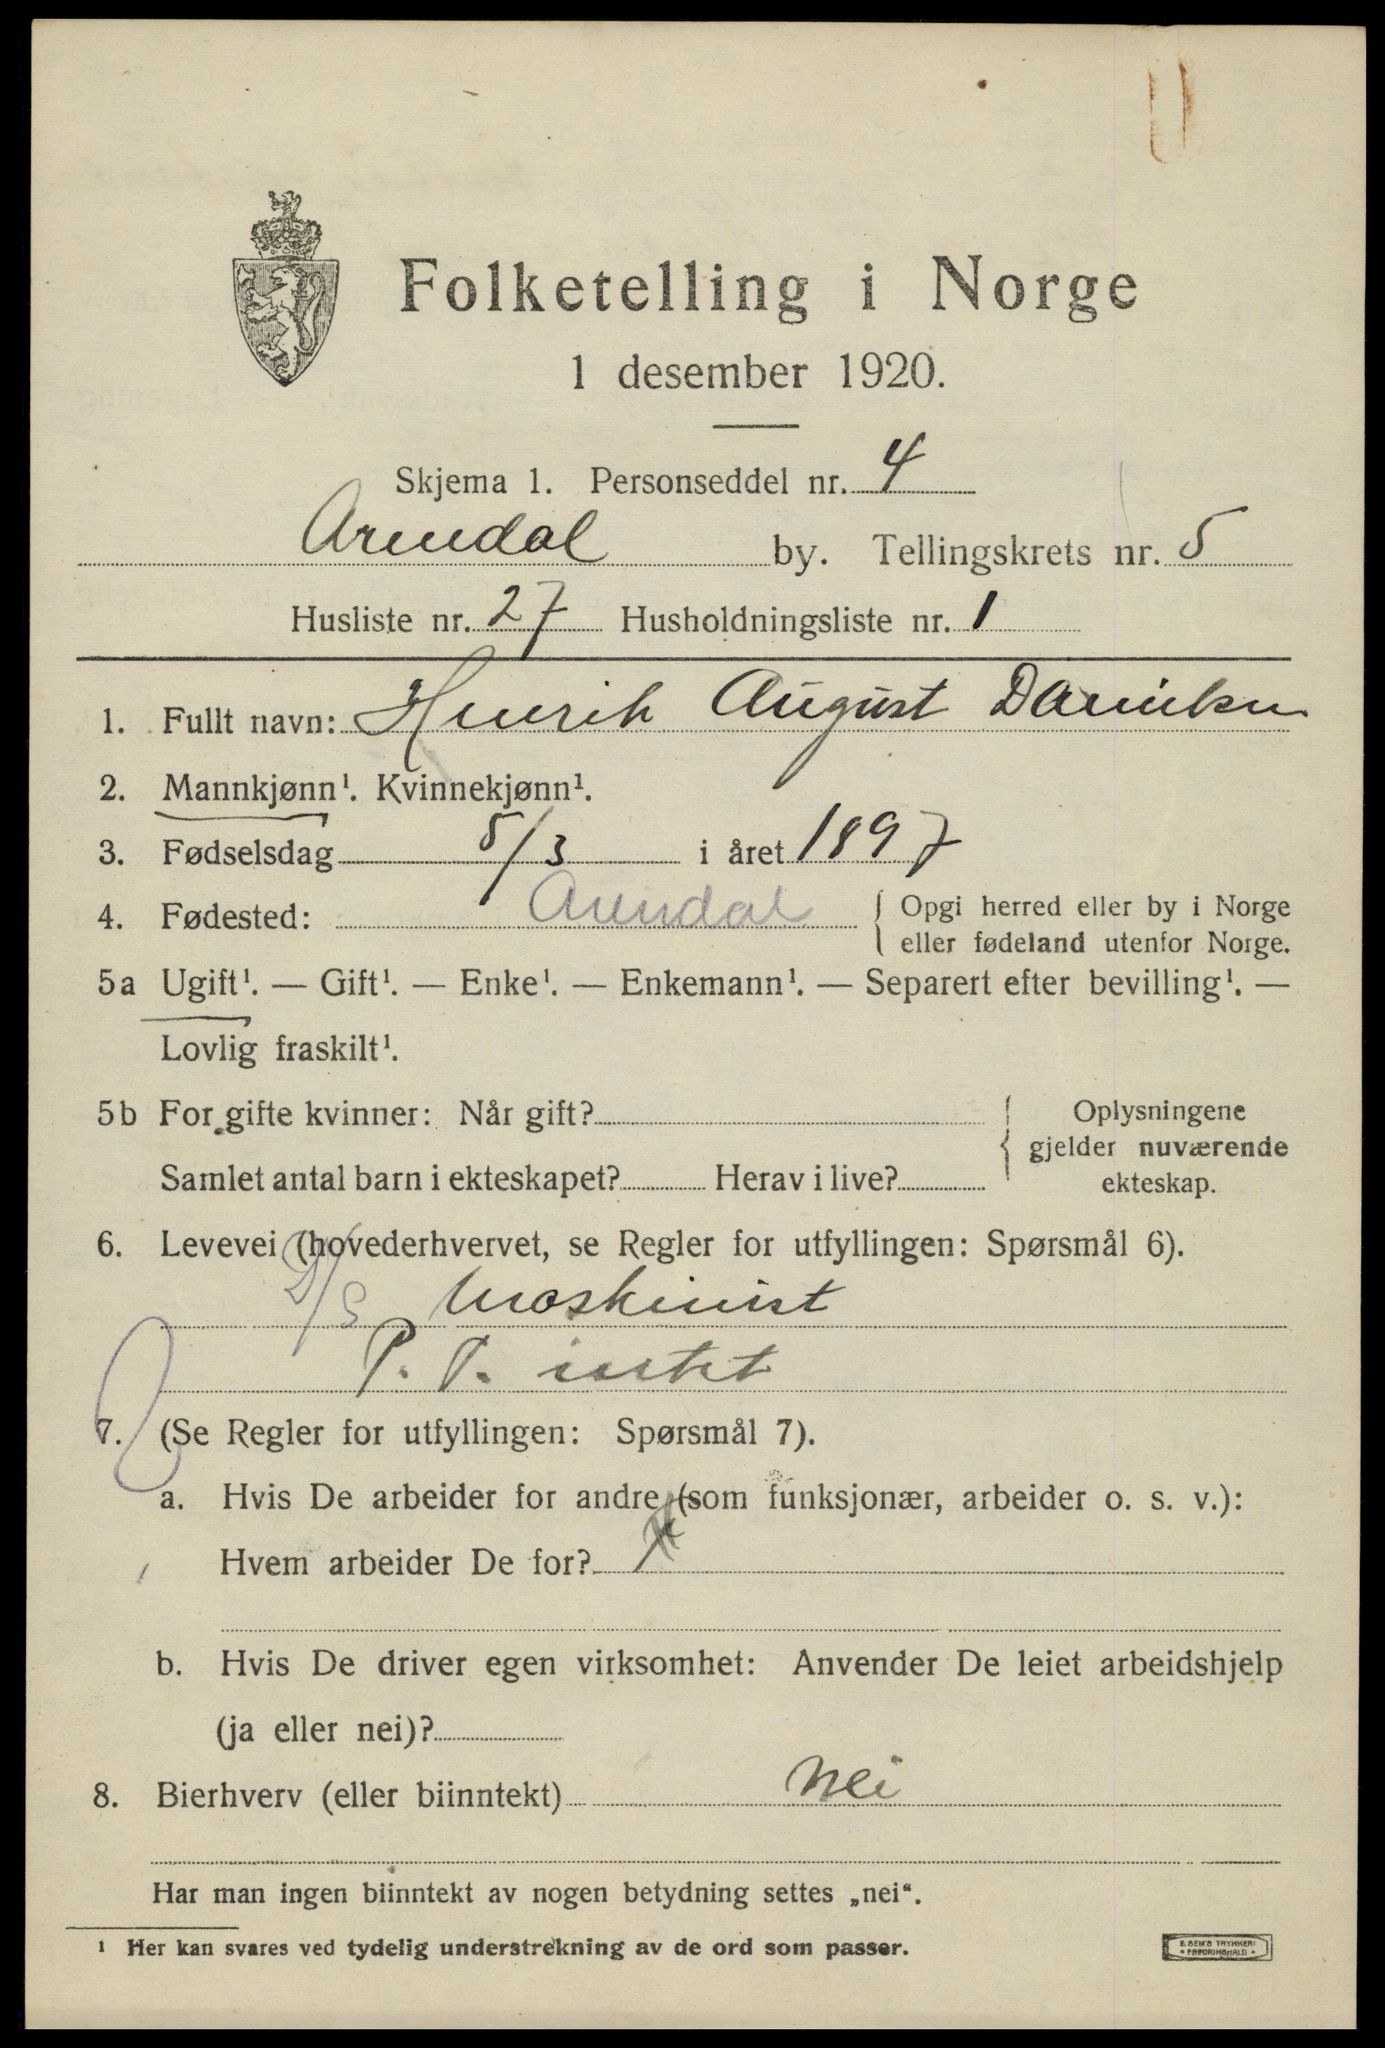 Folketelling i Norge
1 desember 1920.
Skjema 1. Personseddel nr. 4
Arendal by. Tellingskrets nr. 5
Husliste nr. 27 Husholdningsliste nr. 1
1. Fullt navn: Henrik August
2. Mannkjønn¹. Kvinnekjønn¹.
3. Fødselsdag 5/3 i året 1897
4. Fødested: Arendal { Opgi herred eller by i Norge
eller fødeland utenfor Norge.
5a Ugift¹. — Gift¹. — Enke¹. — Enkemann¹. — Separert efter bevilling¹. —
Lovlig fraskilt¹.
5b For gifte kvinner: Når gift? { Oplysningene
gjelder nuværende
Samlet antal barn i ekteskapet? Herav i live? ekteskap.
6. Levevei (hovederhvervet, se Regler for utfyllingen: Spørsmål 6).
D/S Maskinist
P. T.
7. (Se Regler for utfyllingen: Spørsmål 7).
a. Hvis De arbeider for andre (som funksjonær, arbeider o. s. v.):
Hvem arbeider De for?
b. Hvis De driver egen virksomhet: Anvender De leiet arbeidshjelp
(ja eller nei)?
8. Bierhverv (eller biinntekt) Nei
Har man ingen biinntekt av nogen betydning settes „nei“.
¹ Her kan svares ved tydelig understrekning av de ord som passer.
E. SEM'S TRYKKERI
• FREDRIKSHALD •